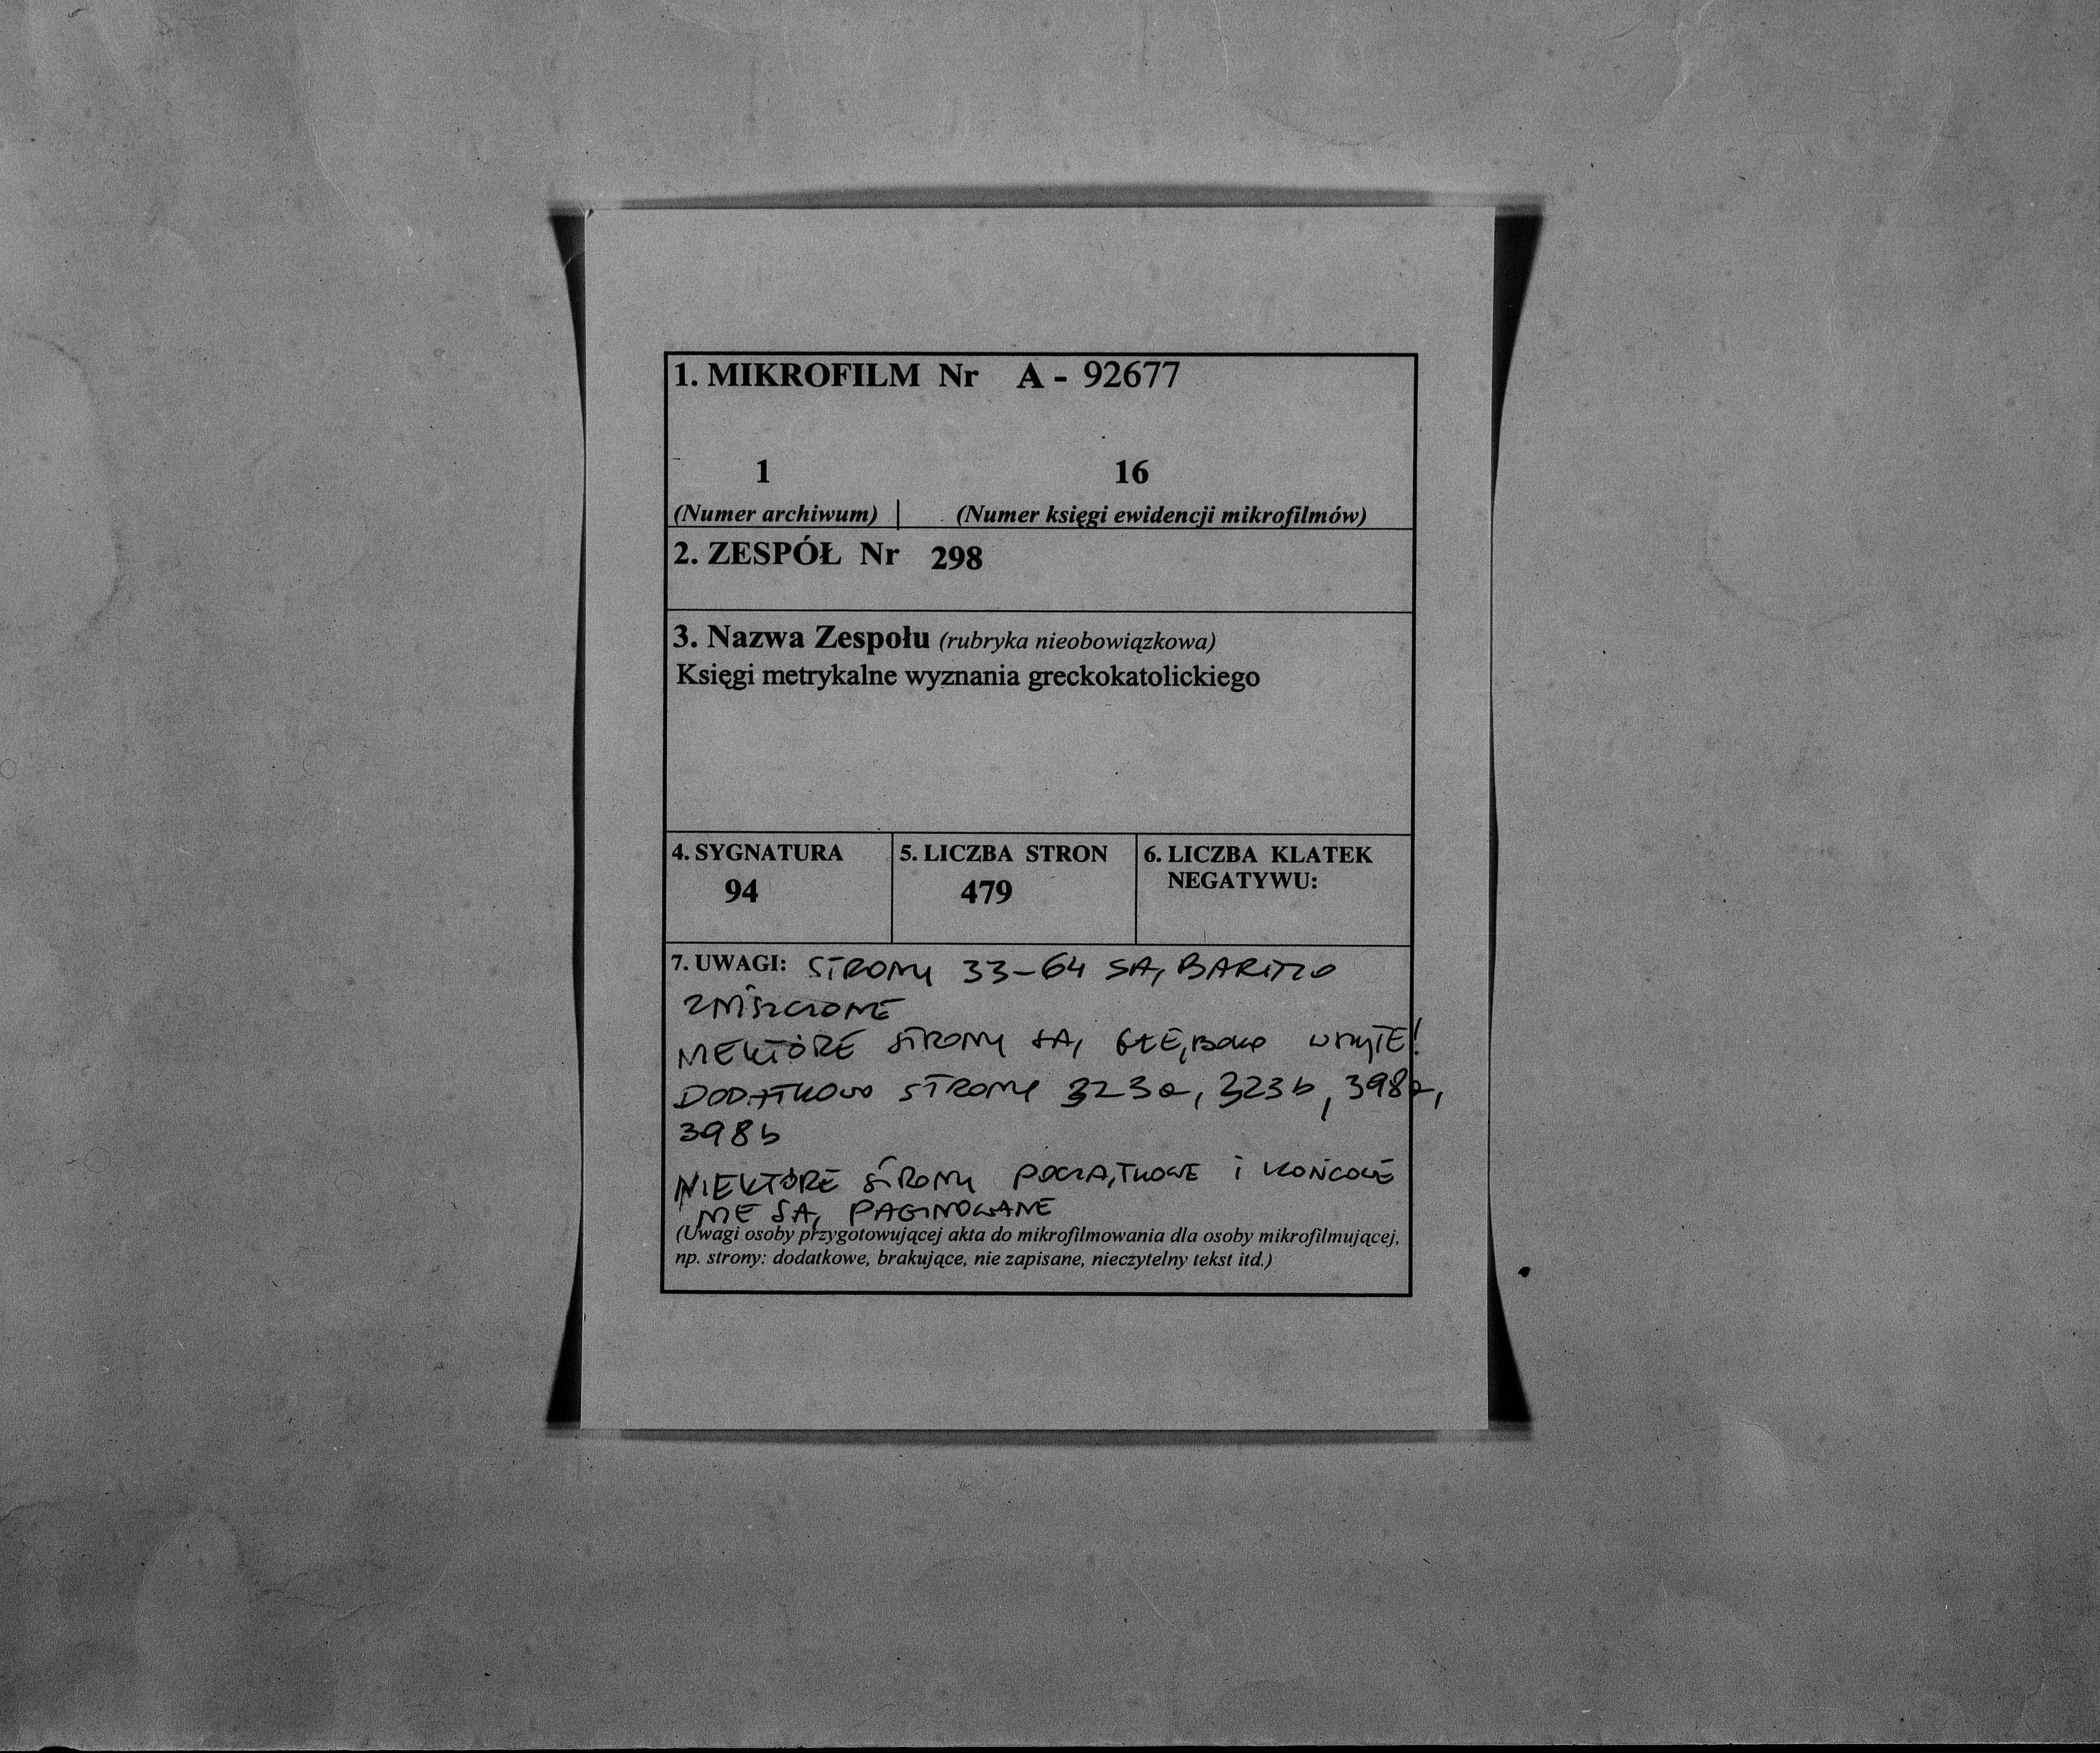 1. MIKROFILM Nr A - 92677
1 16
(Numer archiwum) | (Numer księgi ewidencji mikrofilmów)
2. ZESPÓŁ Nr 298
3. Nazwa Zespołu (rubryka nieobowiązkowa)
Księgi metrykalne wyznania greckokatolickiego
4. SYGNATURA 5. LICZBA STRON 6. LICZBA KLATEK
NEGATYWU:
94 479
7. UWAGI: STRONY 33-64 SĄ BARDZO
ZNISZCZONE
NIEKTÓRE STRONY SĄ GŁĘBOKO WSZYTE!
DODATKOWO STRONY 323a, 323b, 398a,
398b
NIEKTÓRE STRONY POCZĄTKOWE i KOŃCOWE
NIE SĄ PAGINOWANE
(Uwagi osoby przygotowującej akta do mikrofilmowania dla osoby mikrofilmującej,
np. strony: dodatkowe, brakujące, nie zapisane, nieczytelny tekst itd.)